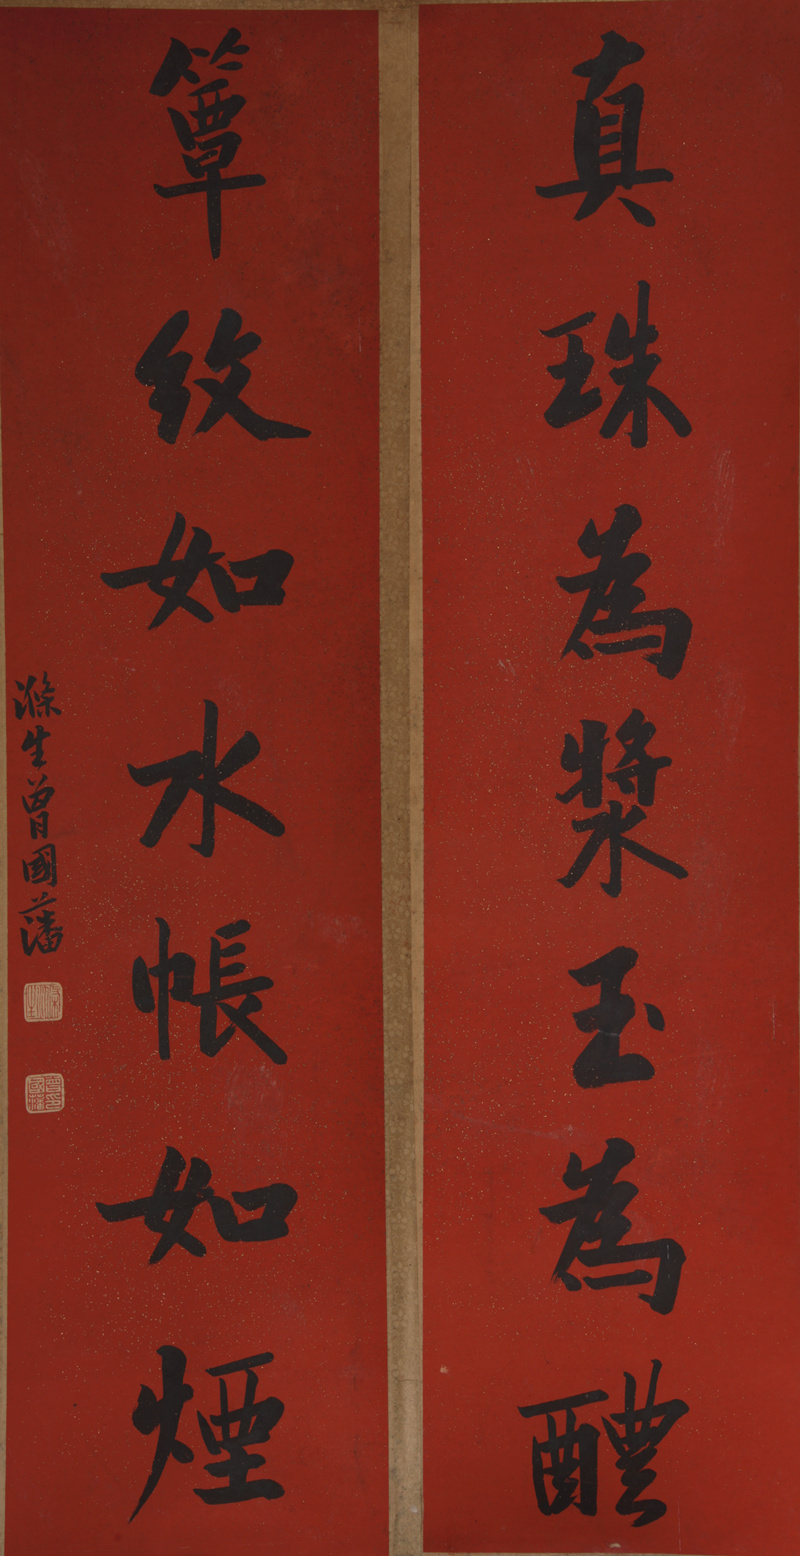 真珠為漿玉為醴
簟紋如水帳如煙
滌生曾國藩